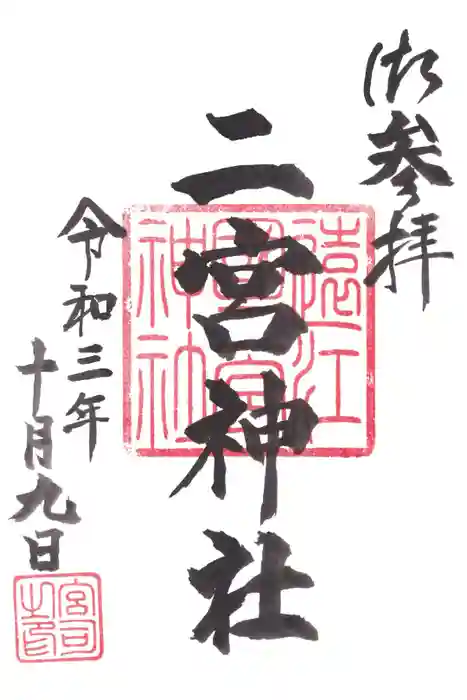 御参拝
二宮神社
令和三年
十月九日
遠江
神社
宮司
之印